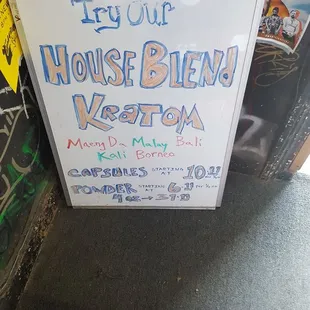 Try Our
HOUSE BLEND
KRATOM
Maeng Da Malay Bali
Kali Borneo
CAPSULES STARTING AT
POWDER STARTING AT